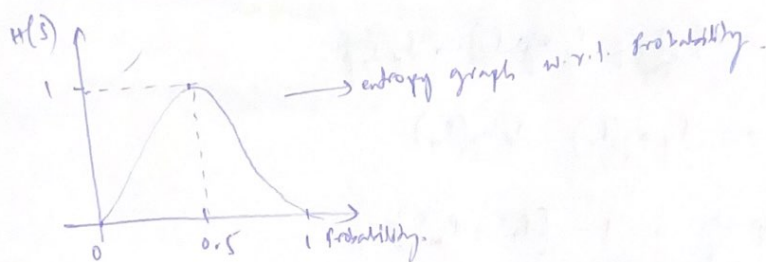 H(S)
1
→ entropy graph w.r.t. Probability.
0
0.5
1
Probability.